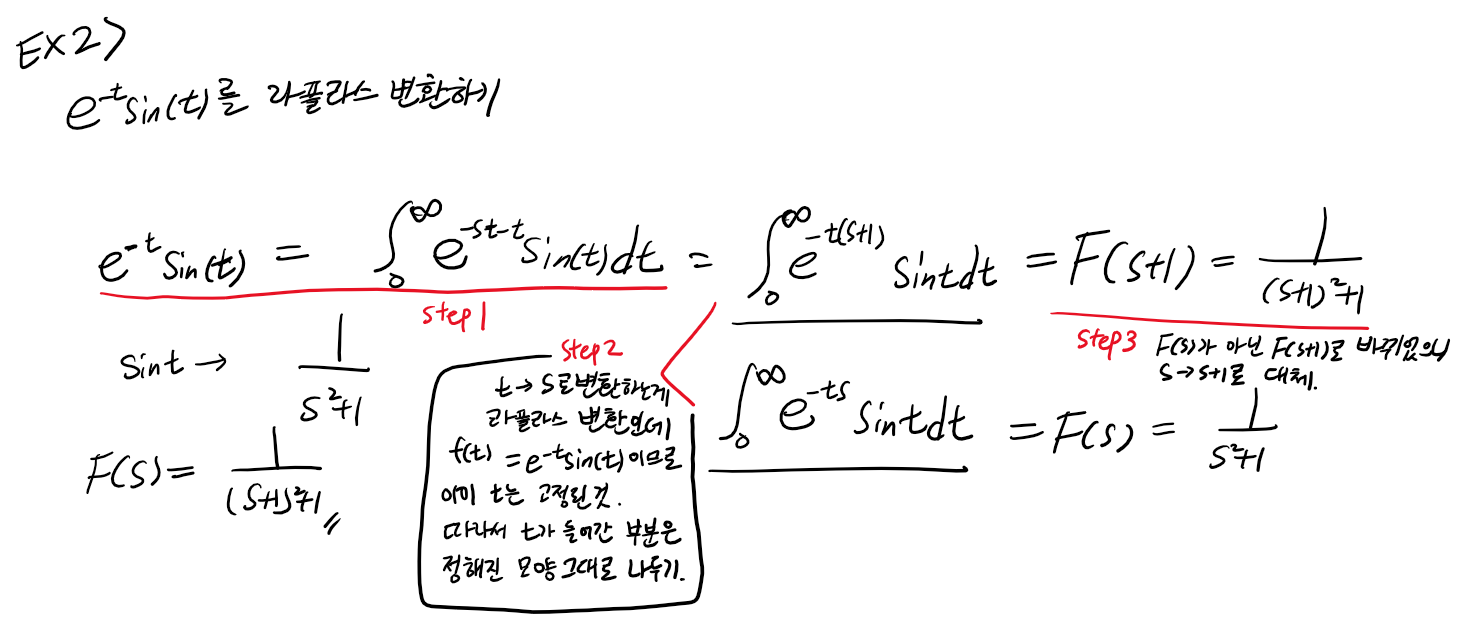 EX2>
e^-t sin(t)를 라플라스 변환하기
e^-t sin(t) = ∫₀^∞ e^-st-t sin(t)dt = ∫₀^∞ e^-t(s+1) sintdt = F(s+1) = 1/((s+1)²+1)
step1
step2
step3 F(s)가 아닌 F(s+1)로 바뀌었으니
s→s+1로 대체.
sint → 1/(s²+1)
F(s) = 1/((s+1)²+1) //
t→s로변환하는게
라플라스 변환인데
f(t) = e^-t sin(t)이므로
이미 t는 고정된것.
따라서 t가 들어간 부분은
정해진 모양그대로 나두기.
∫₀^∞ e^-ts sintdt = F(s) = 1/(s²+1)